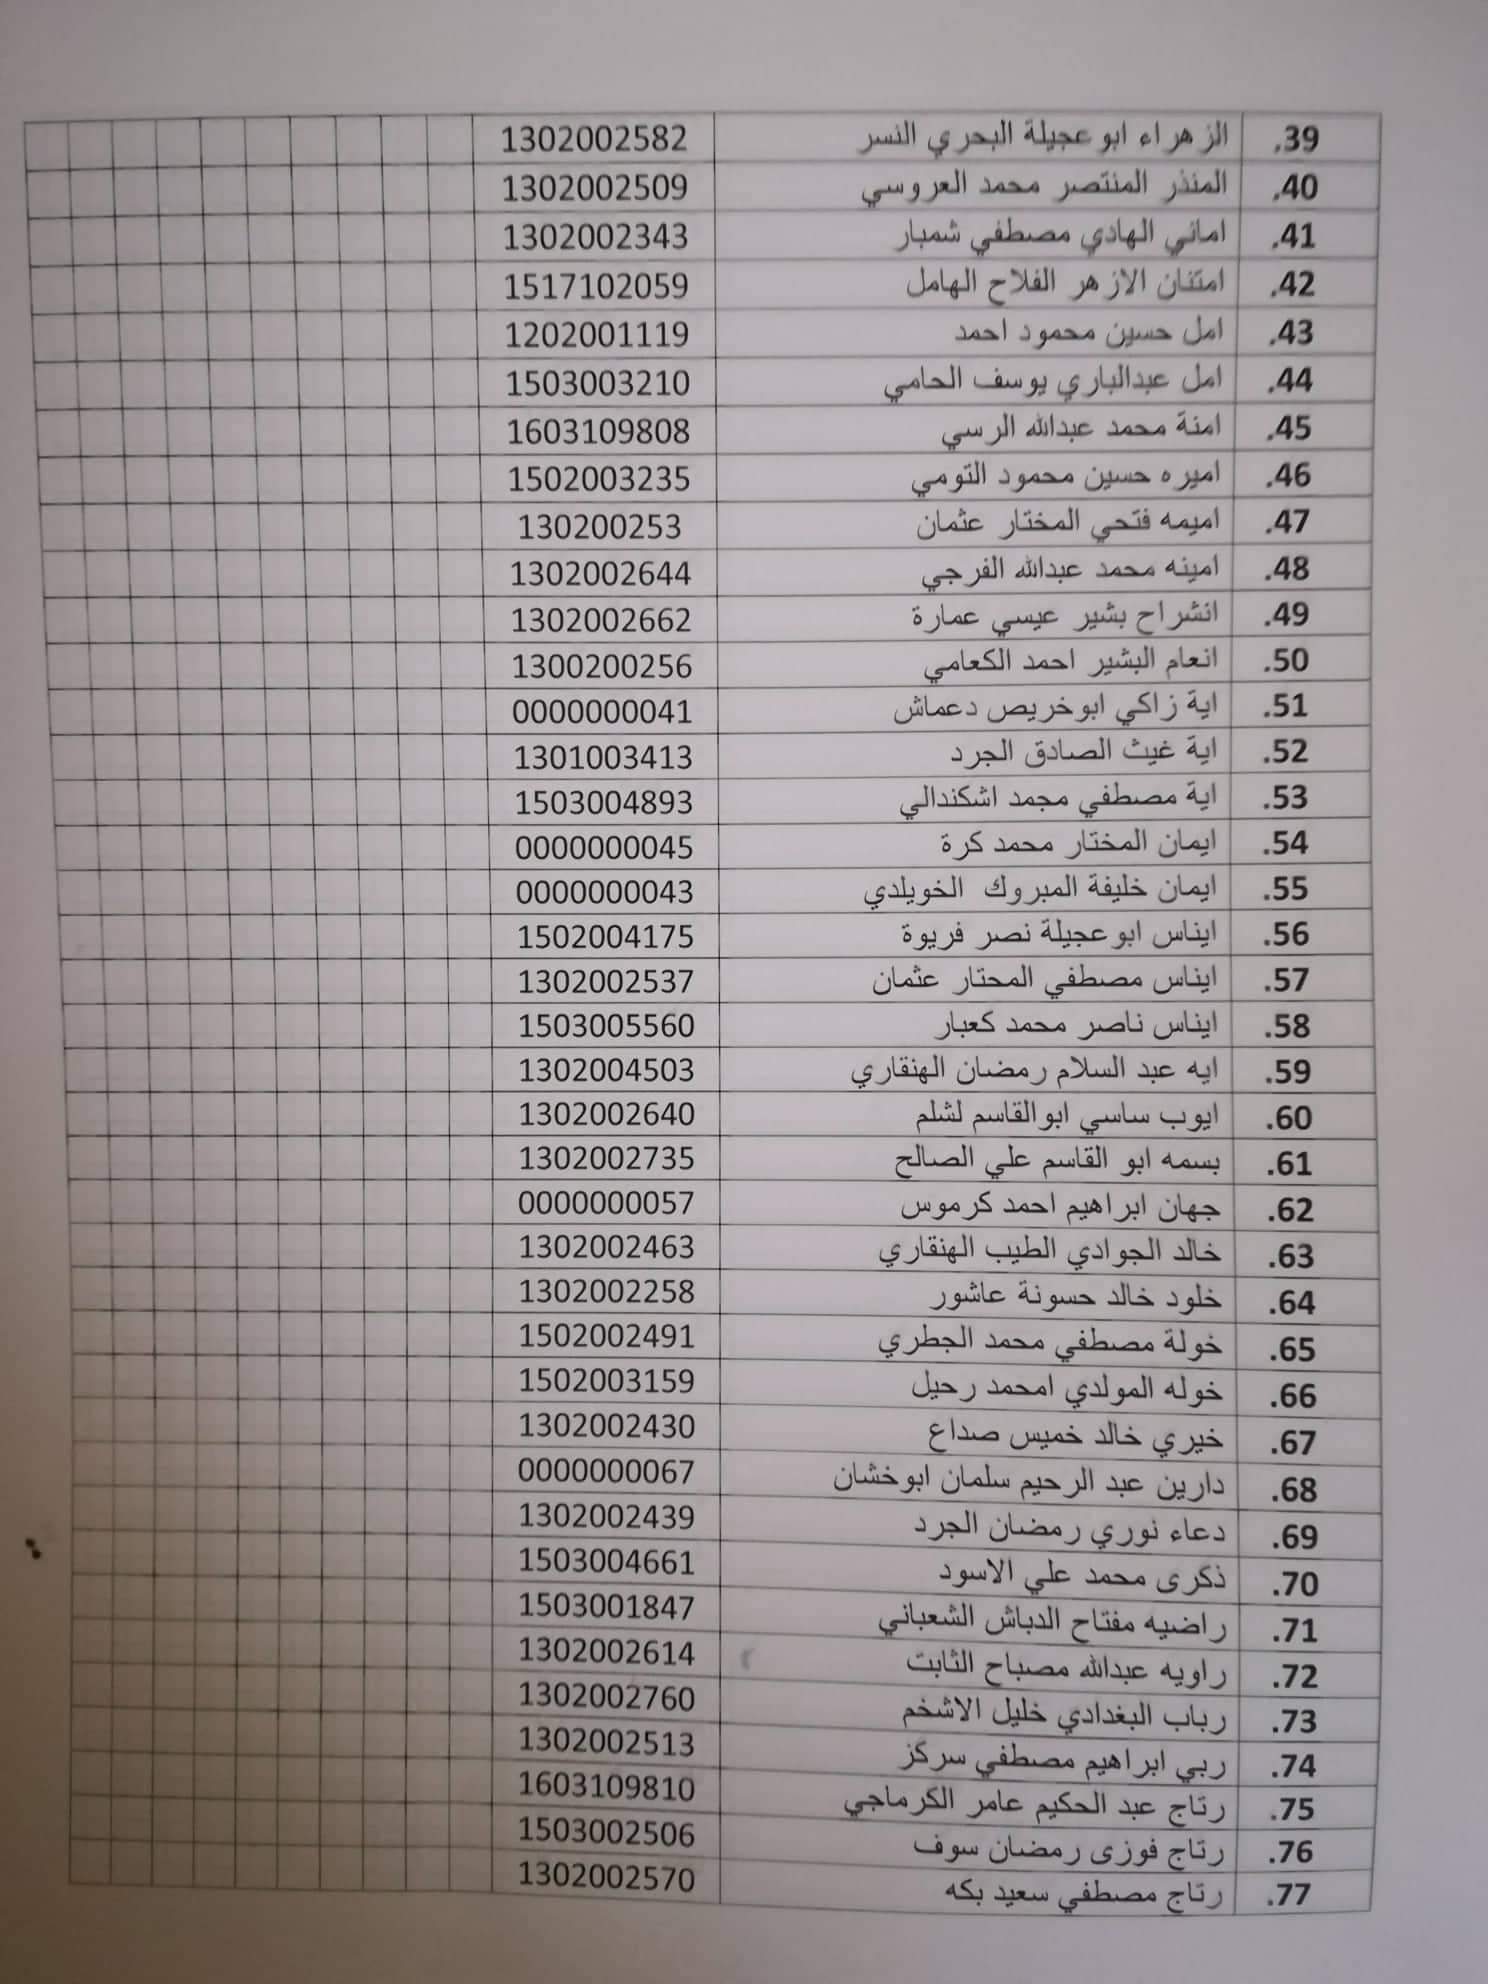 39. الزهراء ابو عجيلة البحري النسر 1302002582
40. المنذر المنتصر محمد العروسي 1302002509
41. اماني الهادي مصطفي شمبار 1302002343
42. امتنان الازهر الفلاح الهامل 1517102059
43. امل حسين محمود احمد 1202001119
44. امل عبدالباري يوسف الحامي 1503003210
45. امنة محمد عبدالله الرسي 1603109808
46. اميره حسين محمود التومي 1502003235
47. اميمه فتحي المختار عثمان 130200253
48. امينه محمد عبدالله الفرجي 1302002644
49. انشراح بشير عيسي عمارة 1302002662
50. انعام البشير احمد الكعامي 1300200256
51. اية زاكي ابوخريص دعماش 0000000041
52. اية غيث الصادق الجرد 1301003413
53. اية مصطفي مجمد اشكندالي 1503004893
54. ايمان المختار محمد كرة 0000000045
55. ايمان خليفة المبروك الخويلدي 0000000043
56. ايناس ابو عجيلة نصر فريوة 1502004175
57. ايناس مصطفي المحتار عثمان 1302002537
58. ايناس ناصر محمد كعبار 1503005560
59. ايه عبد السلام رمضان الهنقاري 1302004503
60. ايوب ساسي ابوالقاسم لشلم 1302002640
61. بسمه ابو القاسم علي الصالح 1302002735
62. جهان ابراهيم احمد كرموس 0000000057
63. خالد الجوادي الطيب الهنقاري 1302002463
64. خلود خالد حسونة عاشور 1302002258
65. خولة مصطفي محمد الجطري 1502002491
66. خوله المولدي امحمد رحيل 1502003159
67. خيري خالد خميس صداع 1302002430
68. دارين عبد الرحيم سلمان ابوخشان 0000000067
69. دعاء نوري رمضان الجرد 1302002439
70. ذكرى محمد علي الاسود 1503004661
71. راضيه مفتاح الدباش الشعباني 1503001847
72. راويه عبدالله مصباح الثابت 1302002614
73. رباب البغدادي خليل الاشخم 1302002760
74. ربي ابراهيم مصطفي سركز 1302002513
75. رتاج عبد الحكيم عامر الكرماجي 1603109810
76. رتاج فوزى رمضان سوف 1503002506
77. رتاج مصطفي سعيد بكه 1302002570